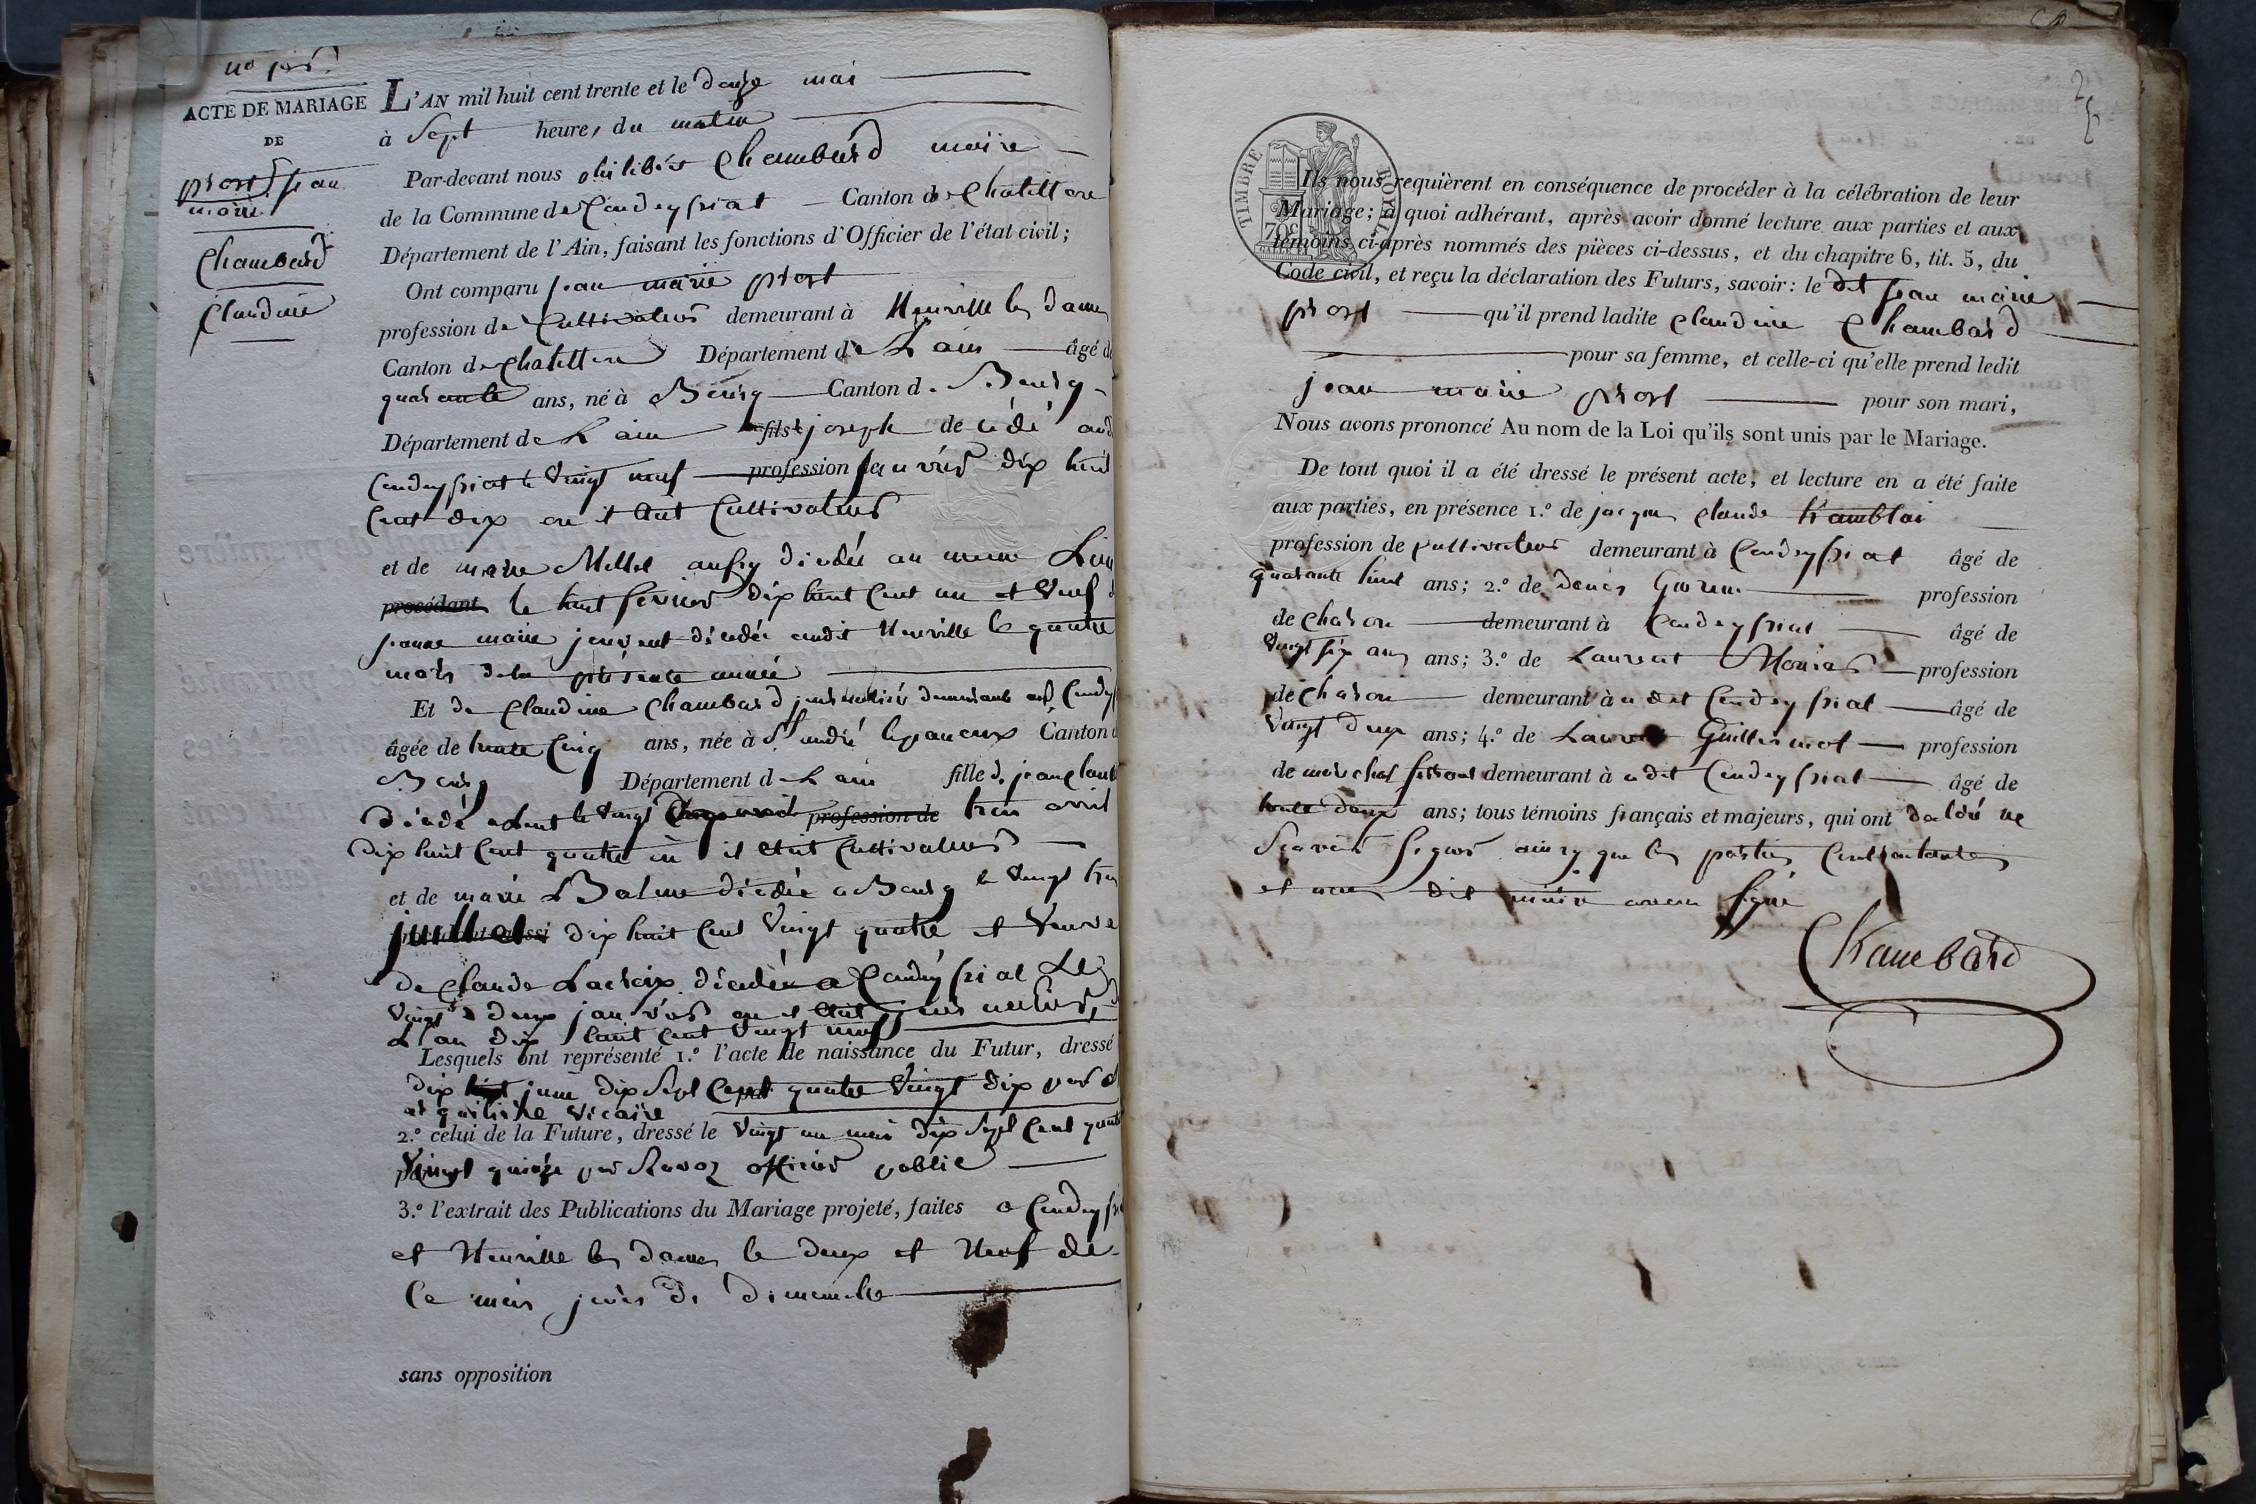 ACTE DE MARIAGE
DE
piost jean
marie
Chambard
Claudine
L'AN mil huit cent trente et le douze mai
à Sept heures du matin
Par-devant nous philibert Chambard maire
de la Commune de Condeyssiat Canton de Chatillon
Département de l'Ain, faisant les fonctions d'Officier de l'état civil;
Ont comparu jean marie piost
profession de Cultivateur demeurant à Neuville les dames
Canton de Chatillon Département de L'ain âgé de
quarante ans, né à Bourg Canton de Bourg
Département de L'ain fils joseph décédé aud
Condeyssiat le vingt neuf profession janvier dix huit
Cent dix ou il était Cultivateur
et de marie Millet aussy décédée au meme Lieu
procédant le huit fevrier dix huit cent un et veuf d
jeanne marie jouvent décédée audit Neuville le quatre
mars de la présente année
Et de Claudine Chambard journalière demeurant aud Condeys
âgée de trente Cinq ans, née à St andré le panoux Canton d
Bourg Département de L'ain fille de jean claude
décédé le vingt profession de trois avril
dix huit Cent quatre ou il était Cultivateur
et de marie Balme décédée a Bourg le vingt trois
juillet dix huit cent vingt quatre et veuve
de Claude Lacroix décédée a Condeyssiat Le
vingt deux janvier ou il était journalier,
L'an dix huit cent vingt neuf
Lesquels ont représenté 1.° l'acte de naissance du Futur, dressé
dix juin dix sept Cent quatre vingt dix par
vicaire
2.° celui de la Future, dressé le vingt un mai dix sept cent quatre
vingt quinze par Ravoz officier public
3.° l'extrait des Publications du Mariage projeté, faites a Condeyssi
et Neuville les dames le deux et Neuf de
Ce mois jours de dimanche
sans opposition
TIMBRE ROYAL
70c
Ils nous requièrent en conséquence de procéder à la célébration de leur
Mariage; à quoi adhérant, après avoir donné lecture aux parties et aux
témoins ci-après nommés des pièces ci-dessus, et du chapitre 6, tit. 5, du
Code civil, et reçu la déclaration des Futurs, savoir: le dit jean marie
piost qu'il prend ladite Claudine Chambard
pour sa femme, et celle-ci qu'elle prend ledit
jean marie piost pour son mari,
Nous avons prononcé Au nom de la Loi qu'ils sont unis par le Mariage.
De tout quoi il a été dressé le présent acte, et lecture en a été faite
aux parties, en présence 1.° de jacques claude
profession de Cultivateur demeurant à Condeyssiat âgé de
quarante huit ans; 2.° de Denis profession
de Charon demeurant à Condeyssiat âgé de
vingt six ans ans; 3.° de Laurent profession
de charon demeurant à u dit Condeyssiat âgé de
vingt deux ans; 4.° de Laurent Guillermot profession
de marechal ferrant demeurant à u dit Condeyssiat âgé de
trente deux ans; tous témoins français et majeurs, qui ont declaré ne
Scavoir Signer ainsy que les parties Contractantes
et nous dit maire avons signé
Chambard